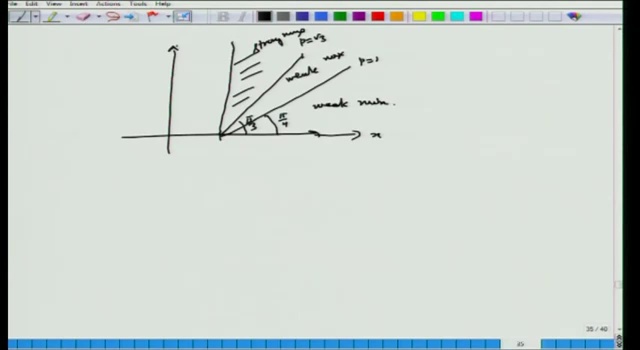 Edit View Insert Actions Tools Help
strong max
p=√3
weak max
p=1
weak min.
π/3
π/4
x
35 / 40
35